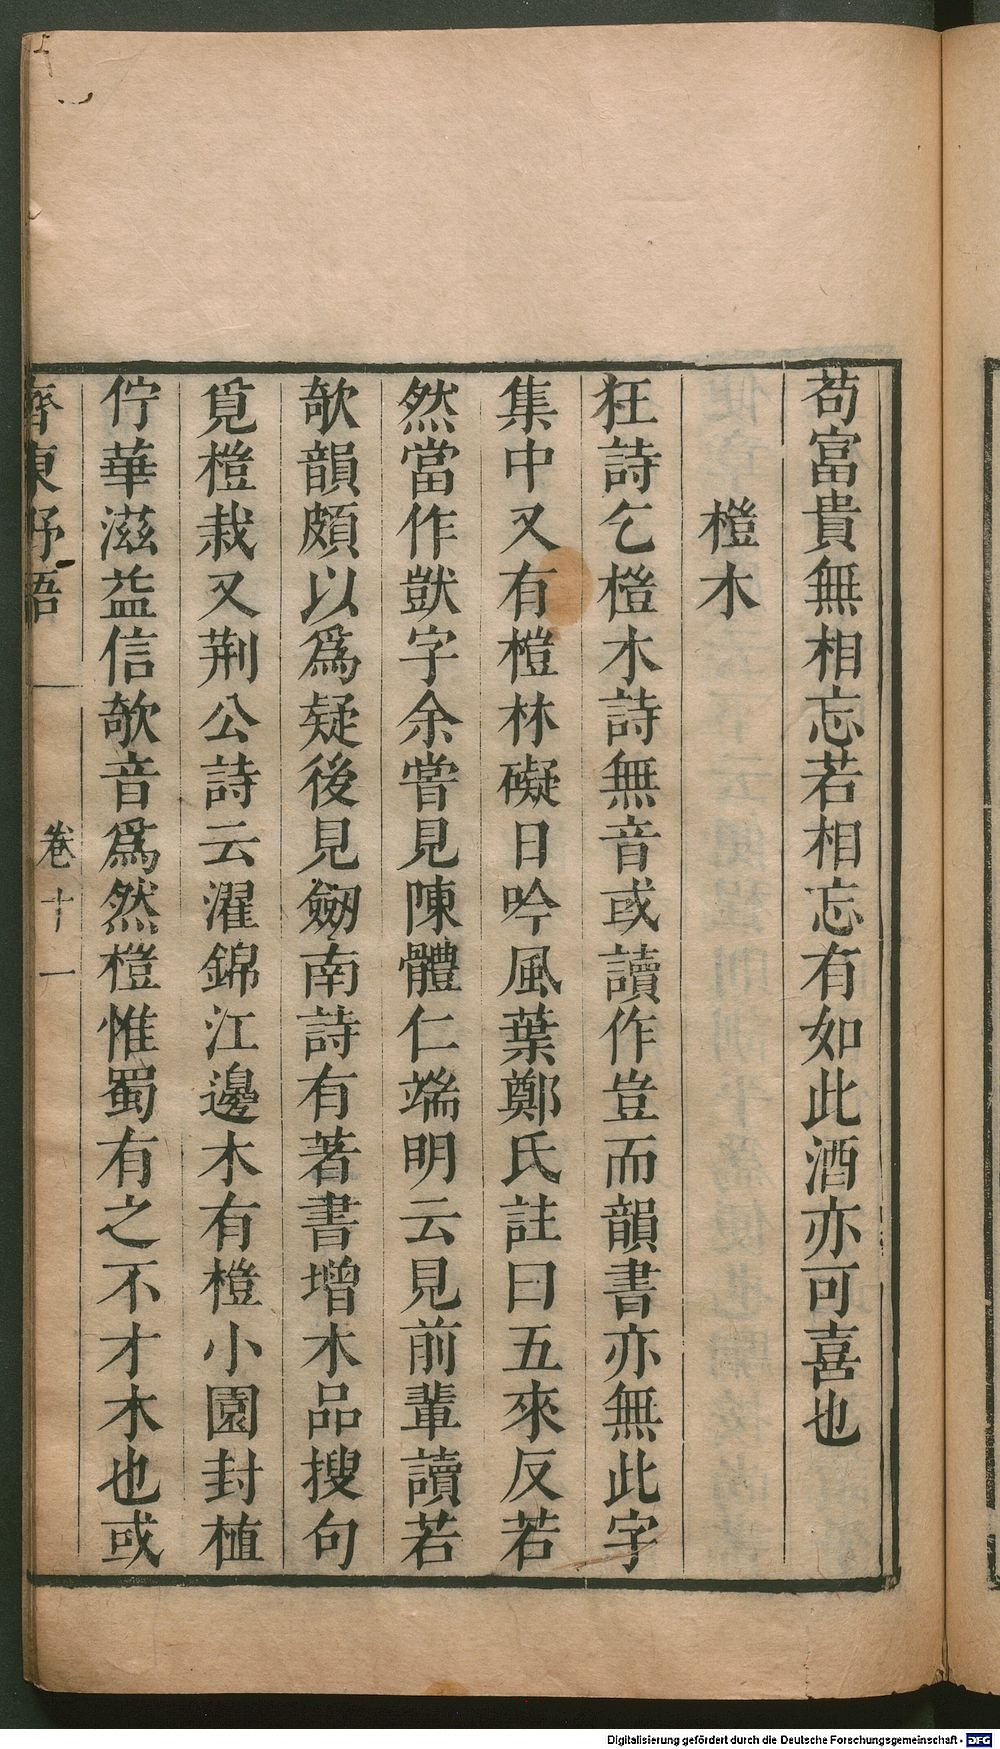 苟富貴無相忘若相忘有如此酒亦可喜也
榿木
狂詩乞榿木詩無音或讀作豈而韻書亦無此字
集中又有榿林礙日吟風葉鄭氏註曰五來反若
然當作獃字余嘗見陳體仁端明云見前輩讀若
欹韻頗以爲疑後見劒南詩有著書增木品搜句
覓榿栽又荆公詩云濯錦江邊木有榿小園封植
佇華滋益信欹音爲然榿惟蜀有之不才木也或
齊東野語
卷十一
Digitalisierung gefördert durch die Deutsche Forschungsgemeinschaft - DFG